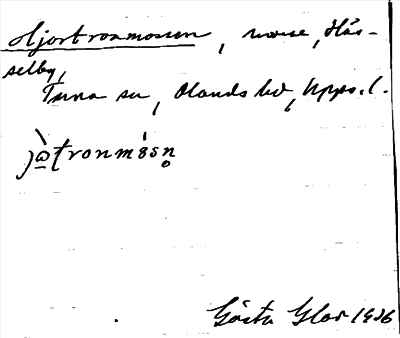 Hjortronmossen, mosse, Häs-
selby,
Tuna sn, Olands hd, Upps. l.
jò̱tronmósn̥
Gösta Glar 1936